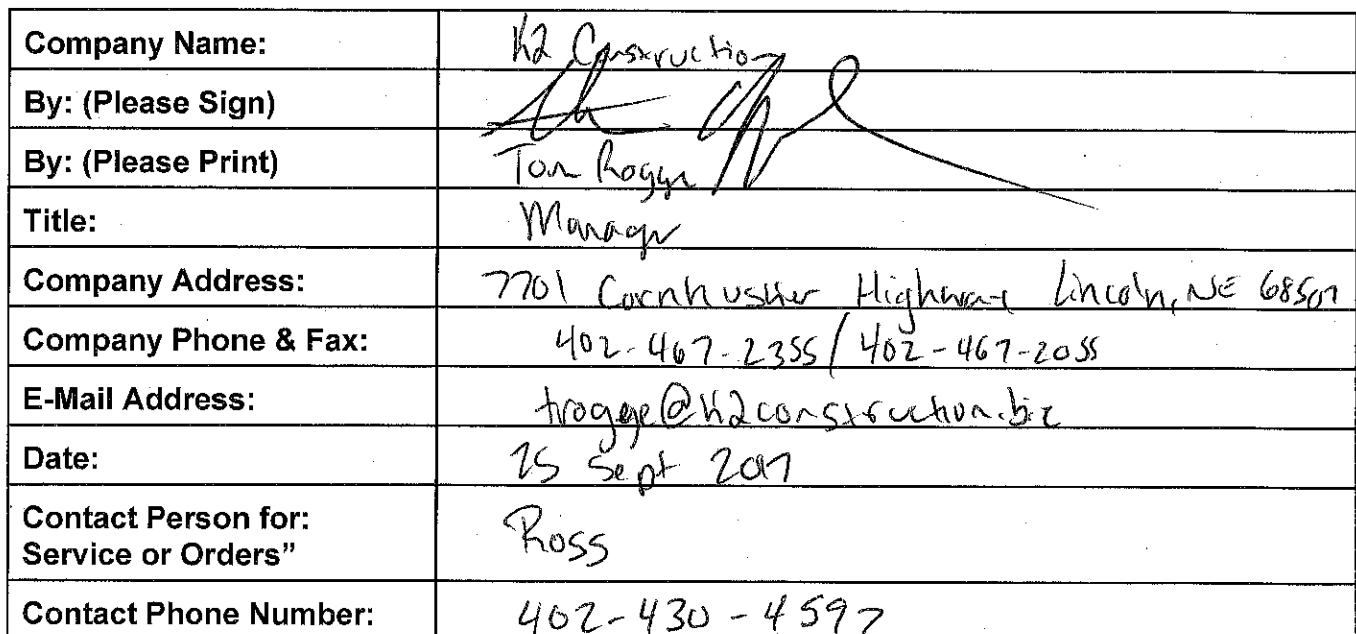 Company Name: K2 Construction
By: (Please Sign)
By: (Please Print) Tom Rogge
Title: Manager
Company Address: 7701 Cornhusker Highway Lincoln, NE 68507
Company Phone & Fax: 402-467-2355 / 402-467-2055
E-Mail Address: trogge@k2construction.biz
Date: 25 Sept 2017
Contact Person for: Ross
Service or Orders”
Contact Phone Number: 402-430-4597